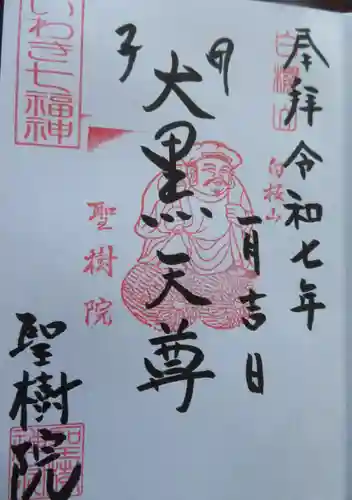 奉拝 令和七年
一月吉日
白椴山
大黒天尊
聖樹院
いわき七福神
聖樹院